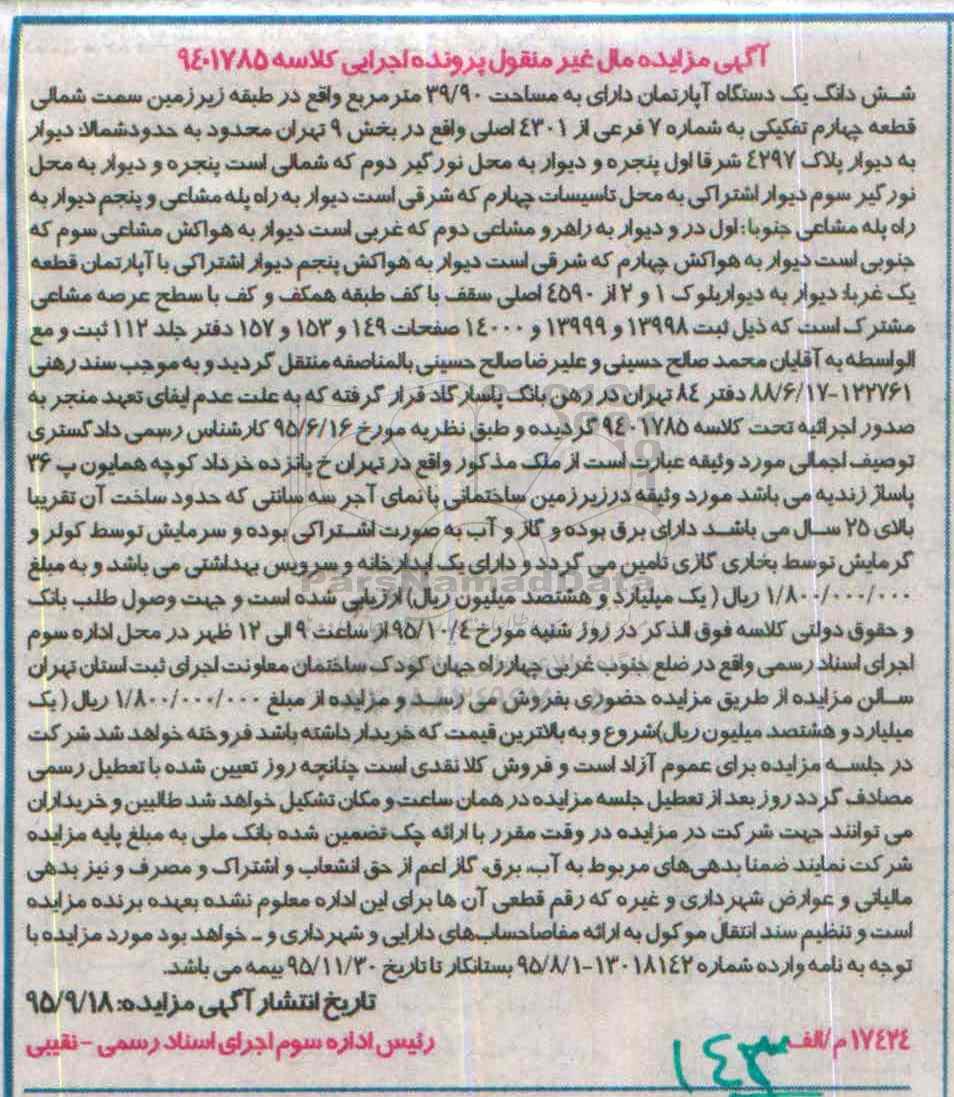 آگهی مزایده مال غیر منقول پرونده اجرایی کلاسه ۹۴۰۱۷۸۵
شش دانگ یک دستگاه آپارتمان دارای به مساحت ۳۹/۹۰ متر مربع واقع در طبقه زیرزمین سمت شمالی
قطعه چهارم تفکیکی به شماره ۷ فرعی از ۴۳۰۱ اصلی واقع در بخش ۹ تهران محدود به حدودشمالا: دیوار
به دیوار پلاک ۴۲۹۷ شرقا اول پنجره و دیوار به محل نورگیر دوم که شمالی است پنجره و دیوار به محل
نورگیر سوم دیوار اشتراکی به محل تاسیسات چهارم که شرقی است دیوار به راه پله مشاعی و پنجم دیوار به
راه پله مشاعی جنوبا: اول در و دیوار به راهرو مشاعی دوم که غربی است دیوار به هواکش مشاعی سوم که
جنوبی است دیوار به هواکش چهارم که شرقی است دیوار به هواکش پنجم دیوار اشتراکی با آپارتمان قطعه
یک غربا: دیوار به دیواربلوک ۱ و ۲ از ۴۵۹۰ اصلی سقف با کف طبقه همکف و کف با سطح عرصه مشاعی
مشترک است که ذیل ثبت ۱۳۹۹۸ و ۱۳۹۹۹ و ۱۴۰۰۰ صفحات ۱۴۹ و ۱۵۳ و ۱۵۷ دفتر جلد ۱۱۲ ثبت و مع
الواسطه به آقایان محمد صالح حسینی و علیرضا صالح حسینی بالمناصفه منتقل گردید و به موجب سند رهنی
۱۲۲۷۶۱-۸۸/۶/۱۷ دفتر ۸۴ تهران در رهن بانک پاسارگاد قرار گرفته که به علت عدم ایفای تعهد منجر به
صدور اجرائیه تحت کلاسه ۹۴۰۱۷۸۵ گردیده و طبق نظریه مورخ ۹۵/۶/۱۶ کارشناس رسمی دادگستری
توصیف اجمالی مورد وثیقه عبارت است از ملک مذکور واقع در تهران خ پانزده خرداد کوچه همایون پ ۳۶
پاساژ زندیه می باشد مورد وثیقه درزیرزمین ساختمانی با نمای آجر سه سانتی که حدود ساخت آن تقریبا
بالای ۲۵ سال می باشد دارای برق بوده و گاز و آب به صورت اشتراکی بوده و سرمایش توسط کولر و
گرمایش توسط بخاری گازی تامین می گردد و دارای یک ابدارخانه و سرویس بهداشتی می باشد و به مبلغ
۱/۸۰۰/۰۰۰/۰۰۰ ریال ( یک میلیارد و هشتصد میلیون ریال) ارزیابی شده است و جهت وصول طلب بانک
و حقوق دولتی کلاسه فوق الذکر در روز شنبه مورخ ۹۵/۱۰/۴ از ساعت ۹ الی ۱۲ ظهر در محل اداره سوم
اجرای اسناد رسمی واقع در ضلع جنوب غربی چهارراه جهان کودک ساختمان معاونت اجرای ثبت استان تهران
سالن مزایده از طریق مزایده حضوری بفروش می رسد و مزایده از مبلغ ۱/۸۰۰/۰۰۰/۰۰۰ ریال ( یک
میلیارد و هشتصد میلیون ریال)شروع و به بالاترین قیمت که خریدار داشته باشد فروخته خواهد شد شرکت
در جلسه مزایده برای عموم آزاد است و فروش کلا نقدی است چنانچه روز تعیین شده با تعطیل رسمی
مصادف گردد روز بعد از تعطیل جلسه مزایده در همان ساعت و مکان تشکیل خواهد شد طالبین و خریداران
می توانند جهت شرکت در مزایده در وقت مقرر با ارائه چک تضمین شده بانک ملی به مبلغ پایه مزایده
شرکت نمایند ضمنا بدهی‌های مربوط به آب، برق، گاز اعم از حق انشعاب و اشتراک و مصرف و نیز بدهی
مالیاتی و عوارض شهرداری و غیره که رقم قطعی آن ها برای این اداره معلوم نشده بعهده برنده مزایده
است و تنظیم سند انتقال موکول به ارائه مفاصاحساب‌های دارایی و شهرداری و ـ خواهد بود مورد مزایده با
توجه به نامه وارده شماره ۱۳۰۱۸۱۴۲-۹۵/۸/۱ بستانکار تا تاریخ ۹۵/۱۱/۳۰ بیمه می باشد.
تاریخ انتشار آگهی مزایده: ۹۵/۹/۱۸
۱۷۴۲۴ م/الف رئیس اداره سوم اجرای اسناد رسمی - نقیبی
ParsNamadData